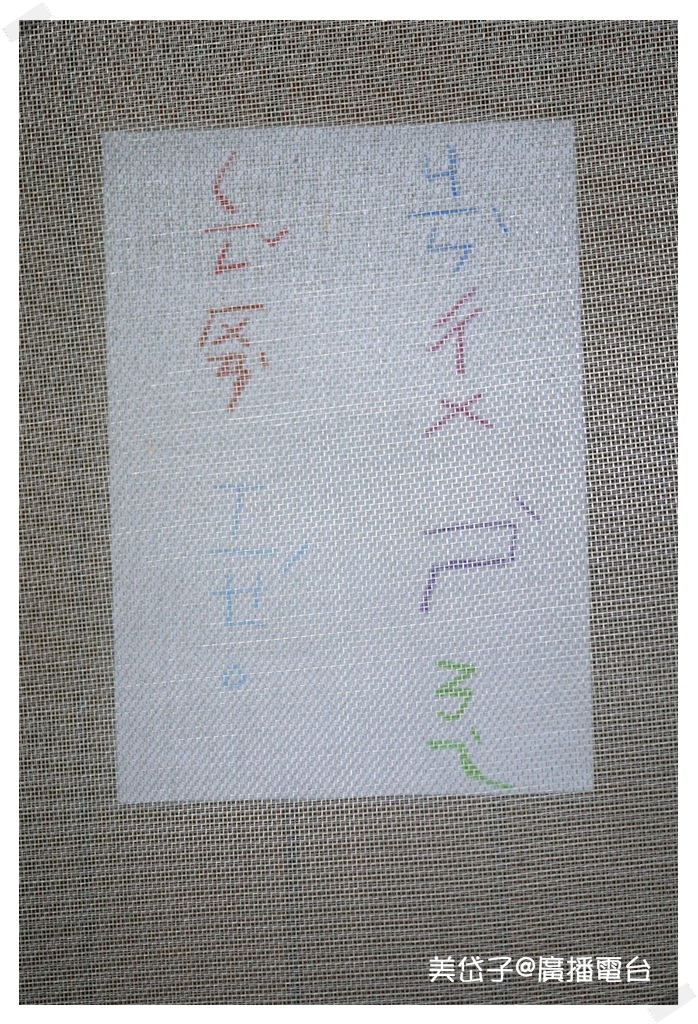 ㄐㄧㄣˋㄔㄨㄕˋㄋㄟˋ
ㄑㄧㄥˇㄏㄨㄢˋㄒㄧㄝˊ。
美岱子@廣播電台